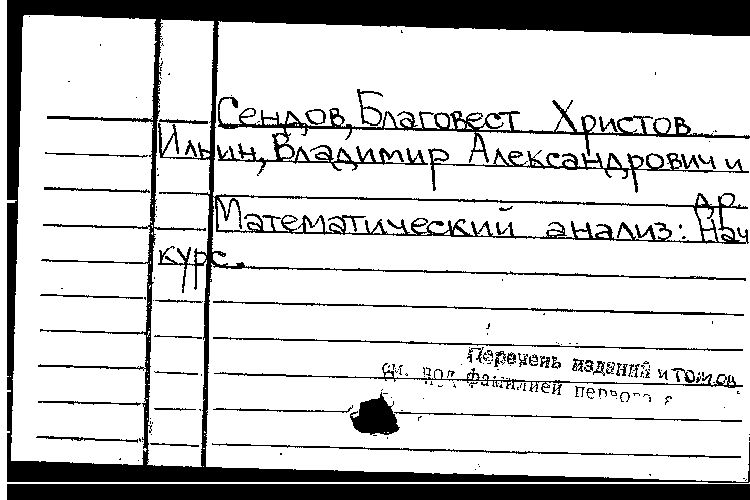 Сендов, Благовест Христов
Ильин, Владимир Александрович и
др.
Математический анализ: Нач
курс.
Перечень изданий и томов
см. под фамилией первого